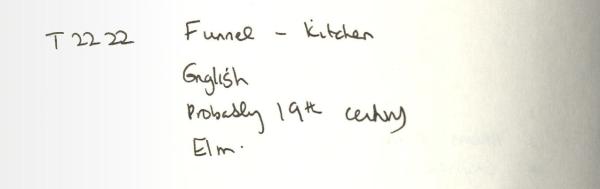 T 2222 Funnel – Kitchen
English
Probably 19th century
Elm.